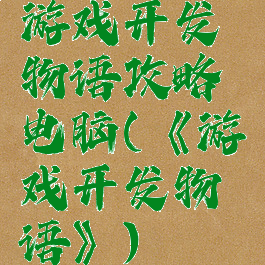 游戏开发
物语攻略
电脑(《游
戏开发物
语》)